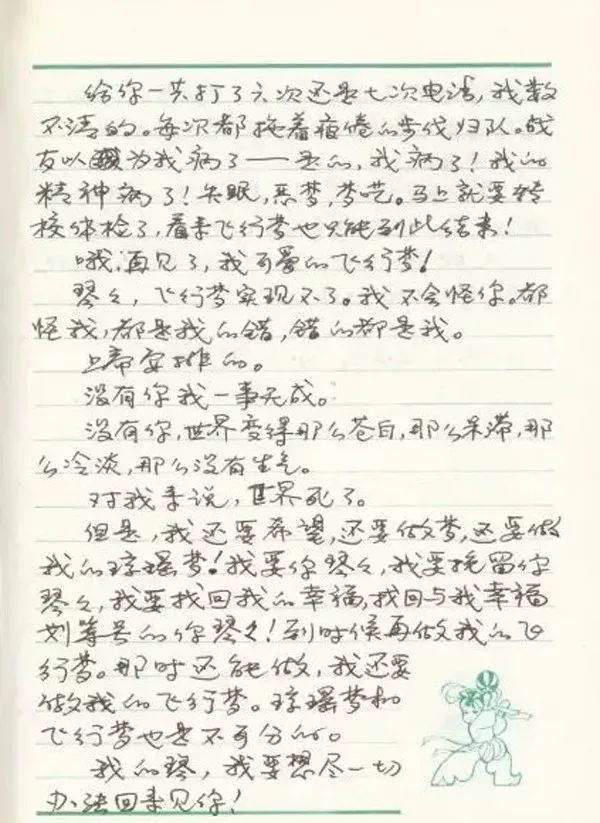 给你一共打了六次还是七次电话,我数
不清的。每次都拖着疲倦的步伐归队。战
友以为我病了——是的,我病了!我的
精神病了!失眠,恶梦,梦呓。马上就要转
校体检了,看来飞行梦也只能到此结束!
哦,再见了,我可爱的飞行梦!
琴々,飞行梦实现不了。我不会怪你。都
怪我,都是我的错,错的都是我。
上帝安排的。
没有你我一事无成。
没有你,世界变得那么苍白,那么呆滞,那
么冷淡,那么没有生气。
对我来说,世界死了。
但是,我还要希望,还要做梦,还要做
我的琼瑶梦!我要你琴々,我要挽留你
琴々,我要找回我的幸福,找回与我幸福
划等号的你琴々!到时候再做我的飞
行梦。那时还能做,我还要
做我的飞行梦。琼瑶梦和
飞行梦也是不可分的。
我的琴,我要想尽一切
办法回来见你!